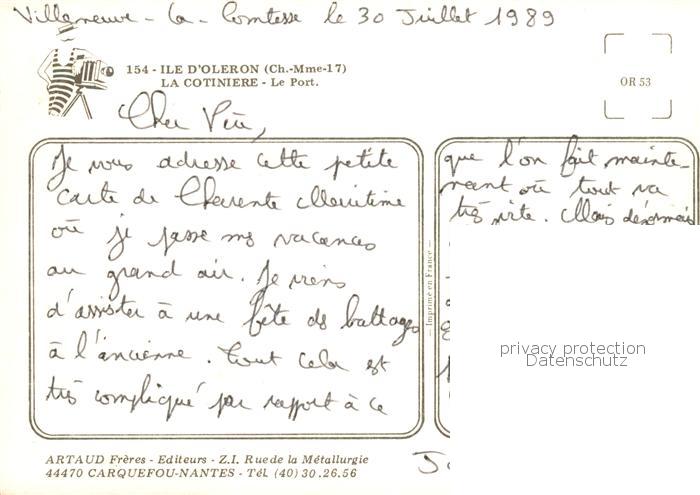 Villeneuve - la - Comtesse le 30 Juillet 1989
154 - ILE D'OLERON (Ch.-Mme-17)
LA COTINIERE - Le Port.
OR 53
Cher
Je vous adresse cette petite
carte de Charente Maritime
où je passe mes vacances
au grand air. Je viens
d'assister à une fête des battages
à l'ancienne. Tout cela est
très compliqué par rapport à ce
que l'on fait mainte-
nant où tout va
très vite. Mais désormais
Imprimé en France
privacy protection
Datenschutz
ARTAUD Frères - Editeurs - Z.I. Rue de la Métallurgie
44470 CARQUEFOU-NANTES - Tél. (40) 30.26.56